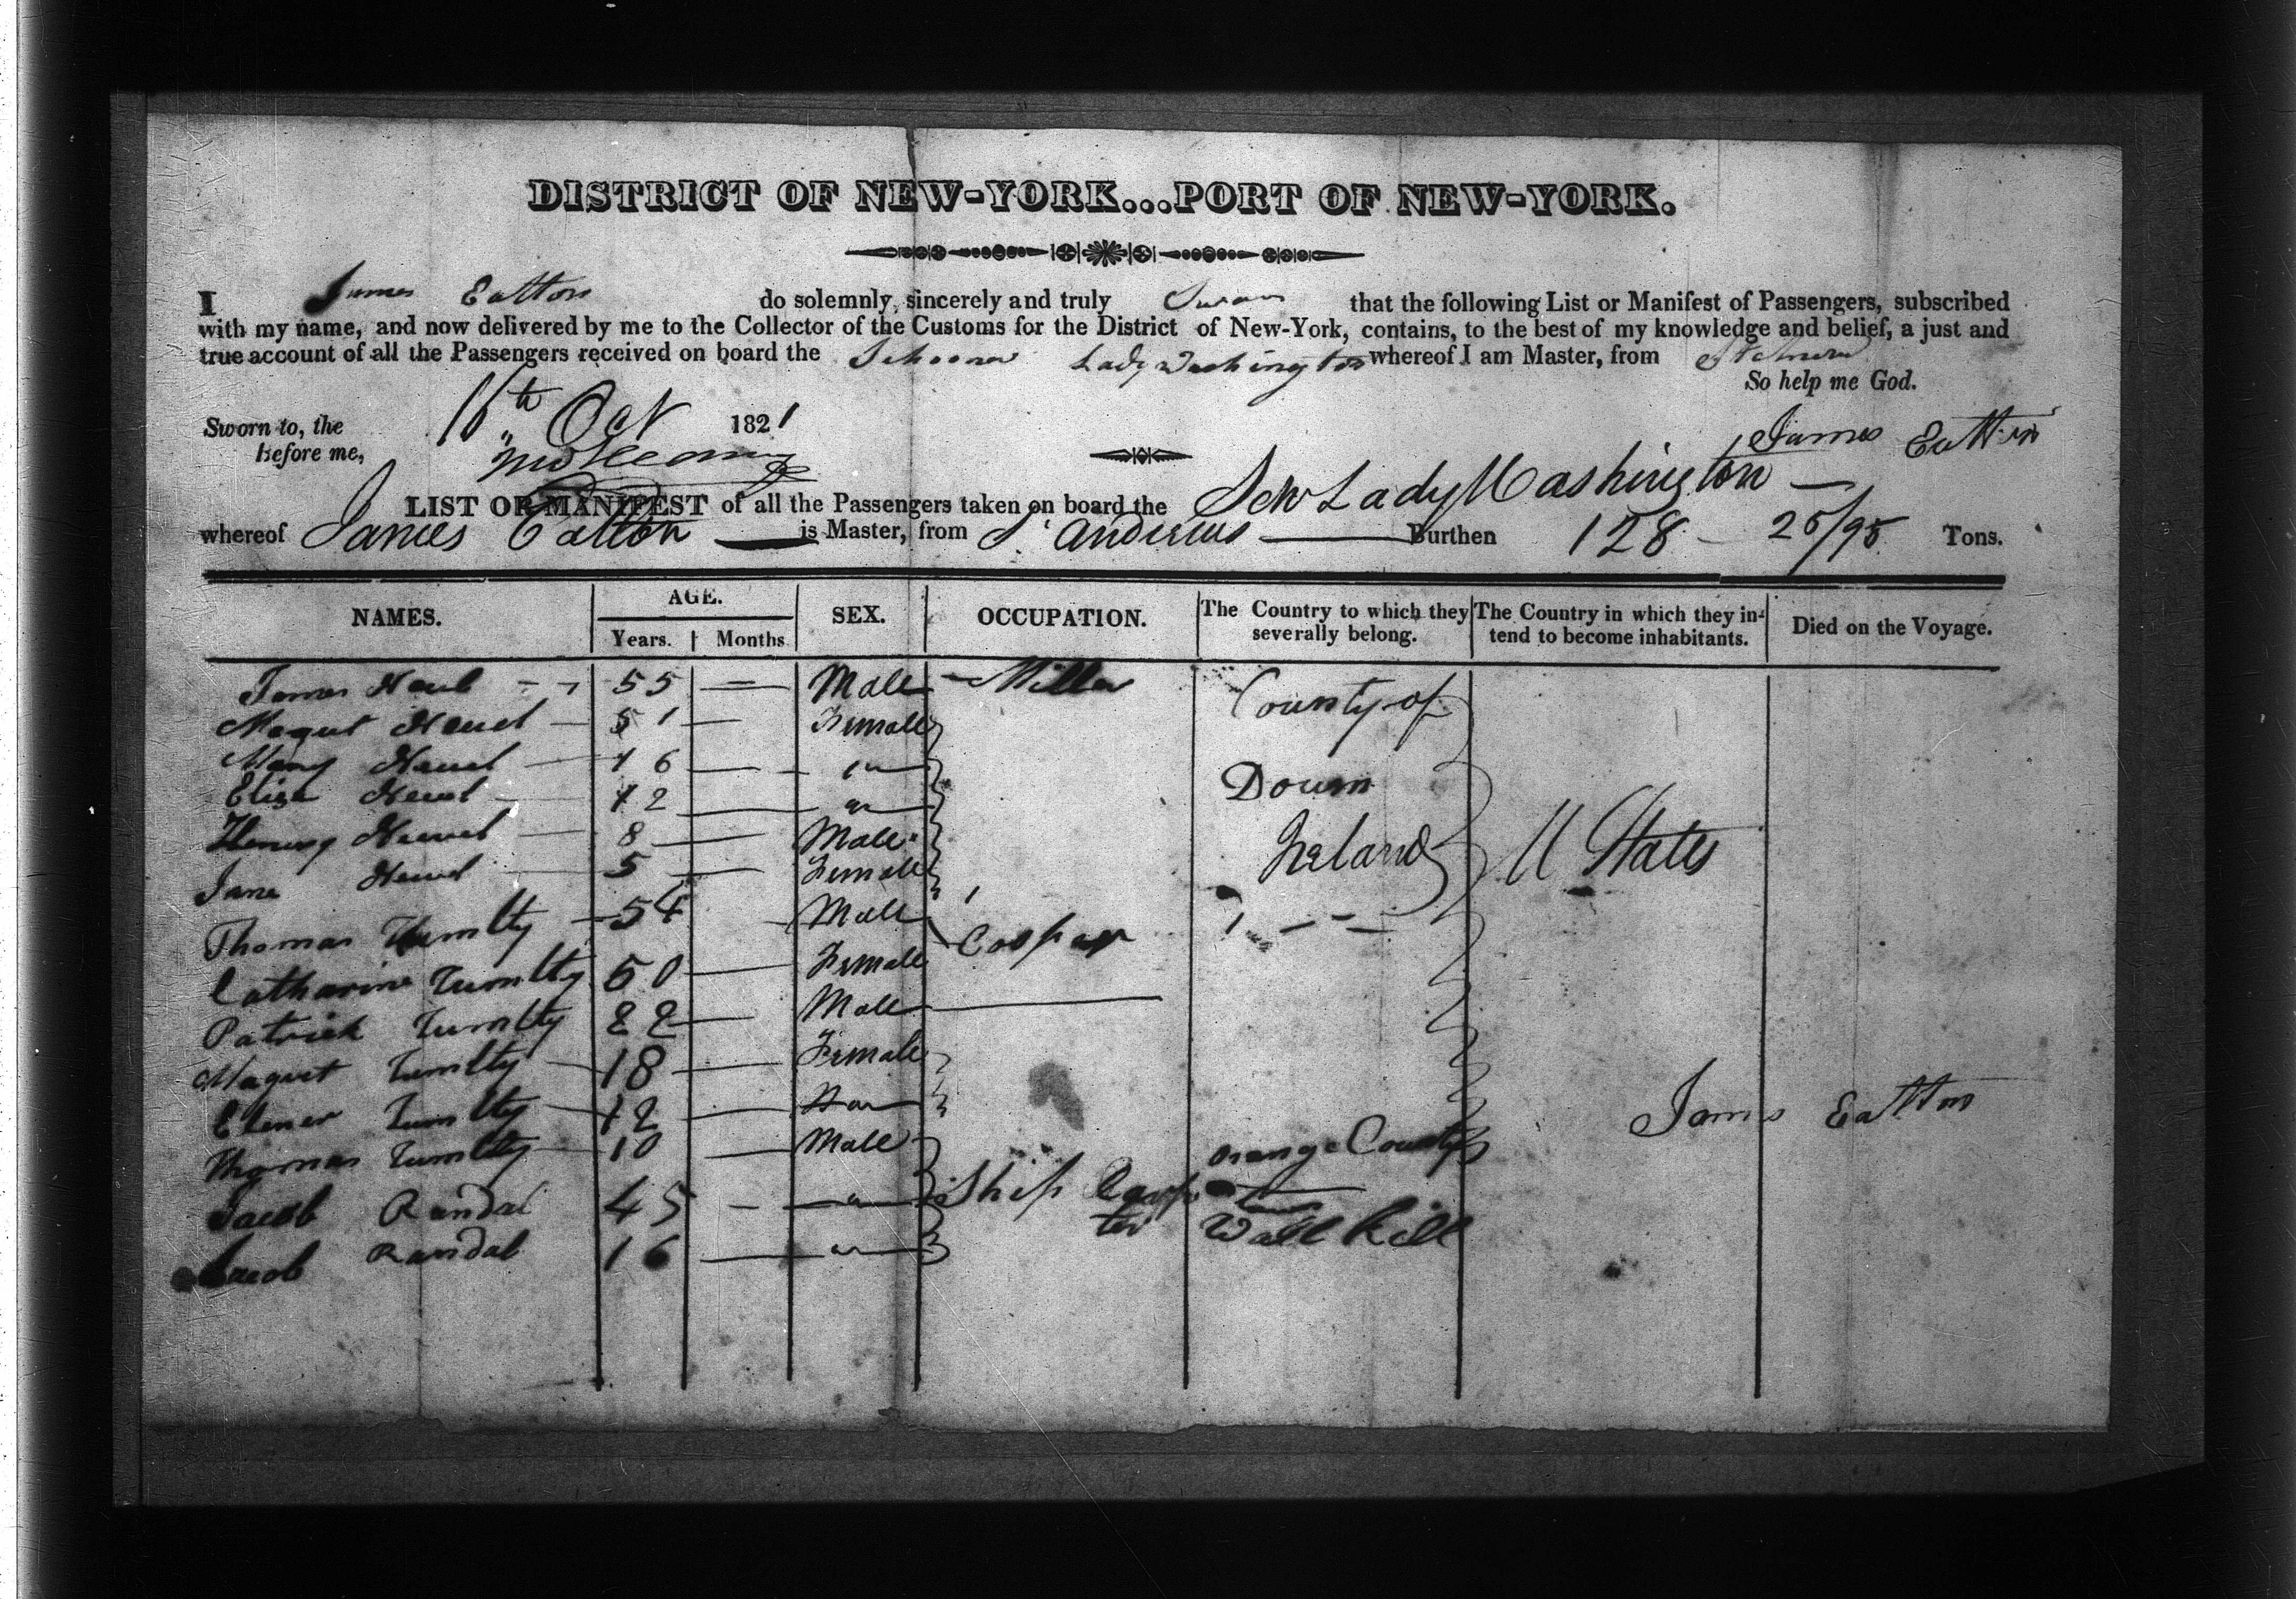 DISTRICT OF NEW-YORK...PORT OF NEW-YORK.
I James Eatton do solemnly, sincerely and truly Swear that the following List or Manifest of Passengers, subscribed
with my name, and now delivered by me to the Collector of the Customs for the District of New-York, contains, to the best of my knowledge and belief, a just and
true account of all the Passengers received on board the Schooner Lady Washington whereof I am Master, from
So help me God.
Sworn to, the 16th Oct 1821
Before me,
James Eatton
LIST OR MANIFEST of all the Passengers taken on board the Schr Lady Washington
whereof James Eatton is Master, from St Andrews Burthen 128 25/95 Tons.
NAMES. AGE. SEX. OCCUPATION. The Country to which they severally belong. The Country in which they intend to become inhabitants. Died on the Voyage.
Years. Months
James 55 — Male Miller County of
Magret 51 — Female
Mary 16 — "
Eliza 12 — " Down
Henery 8 — Male
Jane 5 — Female Ireland U States
Thomas Tumilty 54 Male Cooper
Catharine Tumilty 50 — Female
Patrick Tumilty 22 — Male —
Magret Tumilty 18 — Female
Elener Tumilty 12 —
Thomas Tumilty 10 — Male Orange County
James Eatton
Jacob Randal 45 - " Ship Carpenter
Jacob Randal 16 — " Wall Kill